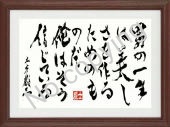 男の一生
は美し
さを作る
ためのも
のだ
俺はそう
信じている
No copying